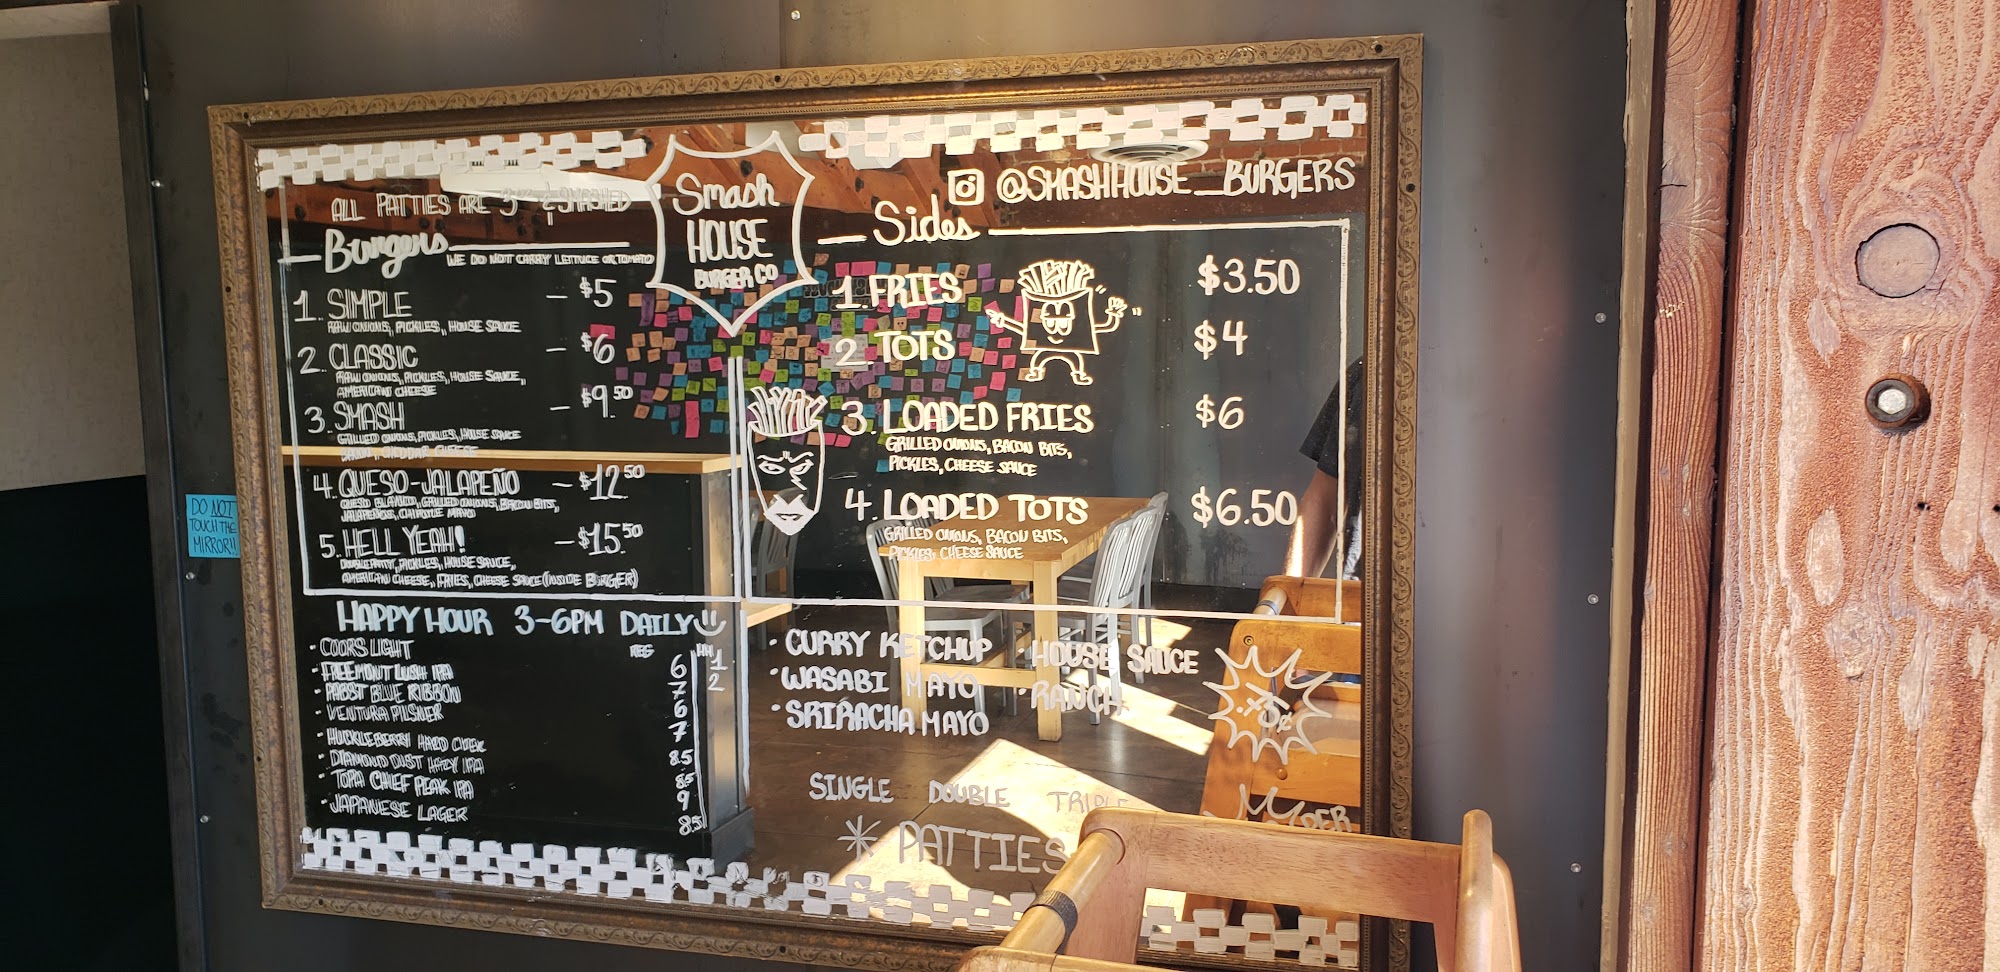 Smash
HOUSE
BURGER CO
@SMASHHOUSE_BURGERS
ALL PATTIES ARE 3 & SMASHED
Burgers
WE DO NOT CARRY LETTUCE OR TOMATO
1. SIMPLE - $5
RAW ONIONS, PICKLES, HOUSE SAUCE
2. CLASSIC - $6
RAW ONIONS, PICKLES, HOUSE SAUCE,
AMERICAN CHEESE
3. SMASH - $9.50
GRILLED ONIONS, PICKLES, HOUSE SAUCE
BACON, CHEDDAR CHEESE
4. QUESO-JALAPEÑO - $12.50
QUESO BLANCO, GRILLED ONIONS, BACON BITS,
JALAPEÑOS, CHIPOTLE MAYO
5. HELL YEAH! - $15.50
DOUBLE PATTY, PICKLES, HOUSE SAUCE,
AMERICAN CHEESE, FRIES, CHEESE SAUCE (INSIDE BURGER)
Sides
1. FRIES $3.50
2. TOTS $4
3. LOADED FRIES $6
GRILLED ONIONS, BACON BITS,
PICKLES, CHEESE SAUCE
4. LOADED TOTS $6.50
GRILLED ONIONS, BACON BITS,
PICKLES, CHEESE SAUCE
DO NOT
TOUCH THE
MIRROR!!
HAPPY HOUR 3-6PM DAILY
REG HH
• COORS LIGHT 6 1
• FREEMONT LUSH IPA 7 2
• PABST BLUE RIBBON 6
• VENTURA PILSNER 7
• HUCKLEBERRY HARD 8.5
• DIAMOND DUST HAZY IPA 8.5
• TOPA CHIEF PEAK IPA 9
• JAPANESE LAGER 8.5
• CURRY KETCHUP • HOUSE SAUCE
• WASABI MAYO • RANCH
• SRIRACHA MAYO
SINGLE DOUBLE TRIPLE
* PATTIES